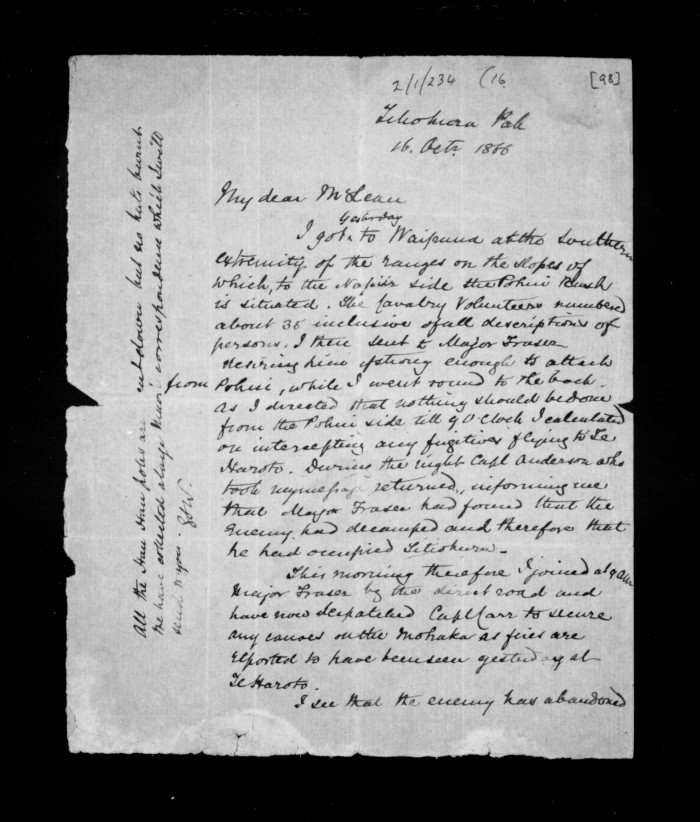 2/1/234 (16 [98]
Titiokura Pah
16. Octr. 1866
My dear McLean
Yesterday
I got to Waipuna at the Southern
extremity of the ranges on the slopes of
which, to the Napier side the Pohui Bush
is situated. The Cavalry Volunteers numbered
about 35 inclusive of all descriptions of
persons. I then sent to Major Fraser
desiring him if strong enough to attack
from Pohui, while I went round to the back.
As I directed that nothing should be done
from the Pohui side till 9 O'Clock I calculated
on intercepting any fugitives flying to Te
Haroto. During the night Capt Anderson who
took my message returned, informing me
that Major Fraser had found that the
Enemy had decamped and therefore that
he had occupied Titiokura.
This morning therefore I joined at 9 am
Major Fraser by the direct road and
have now despatched Capt Carr to secure
any canoes on the Mohaka as fires are
reported to have been seen yesterday at
Te Haroto.
I see that the enemy has abandoned
All the Hau Hau poles are cut down but no huts burnt
We have collected a large Maori correspondence which I will
send to you. GSW.